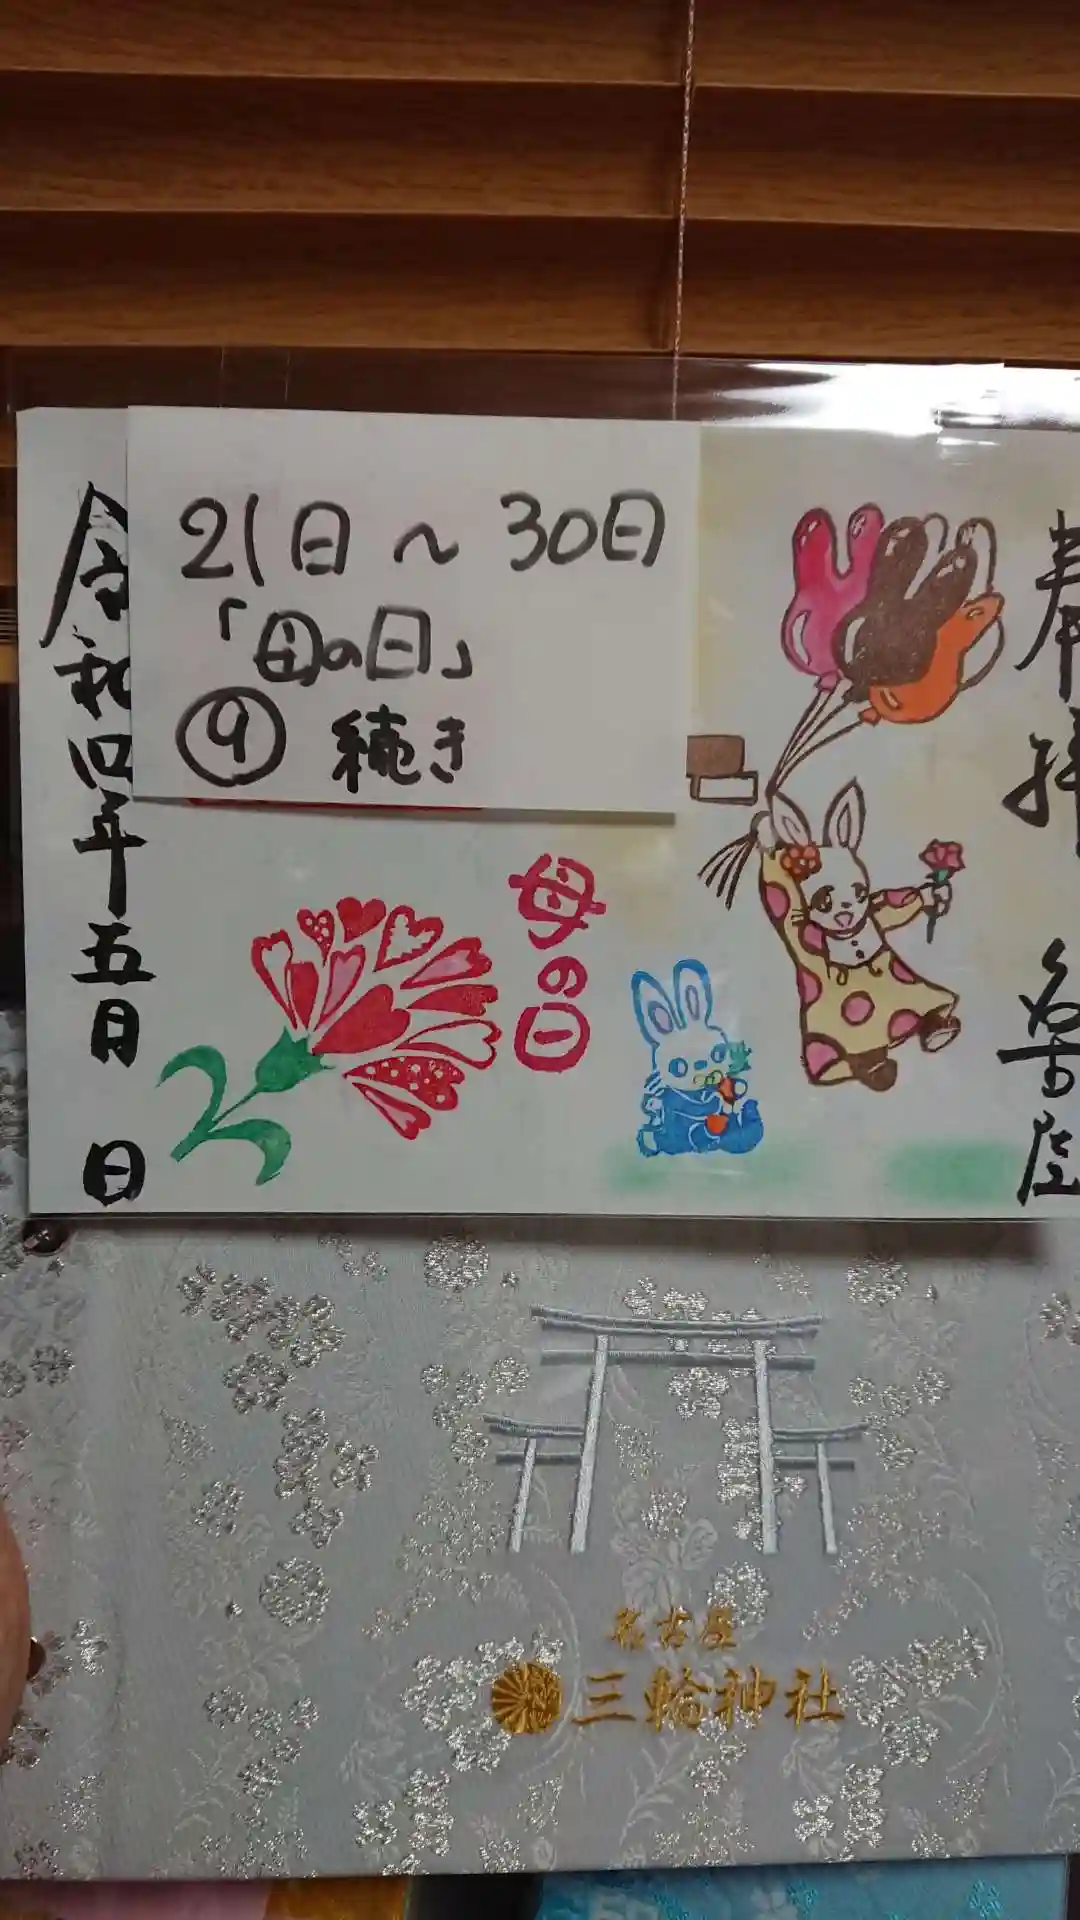 21日～30日
「母の日」
⑨ 続き
奉拝 名古屋
母の日
令和四年五月 日
名古屋
三輪神社